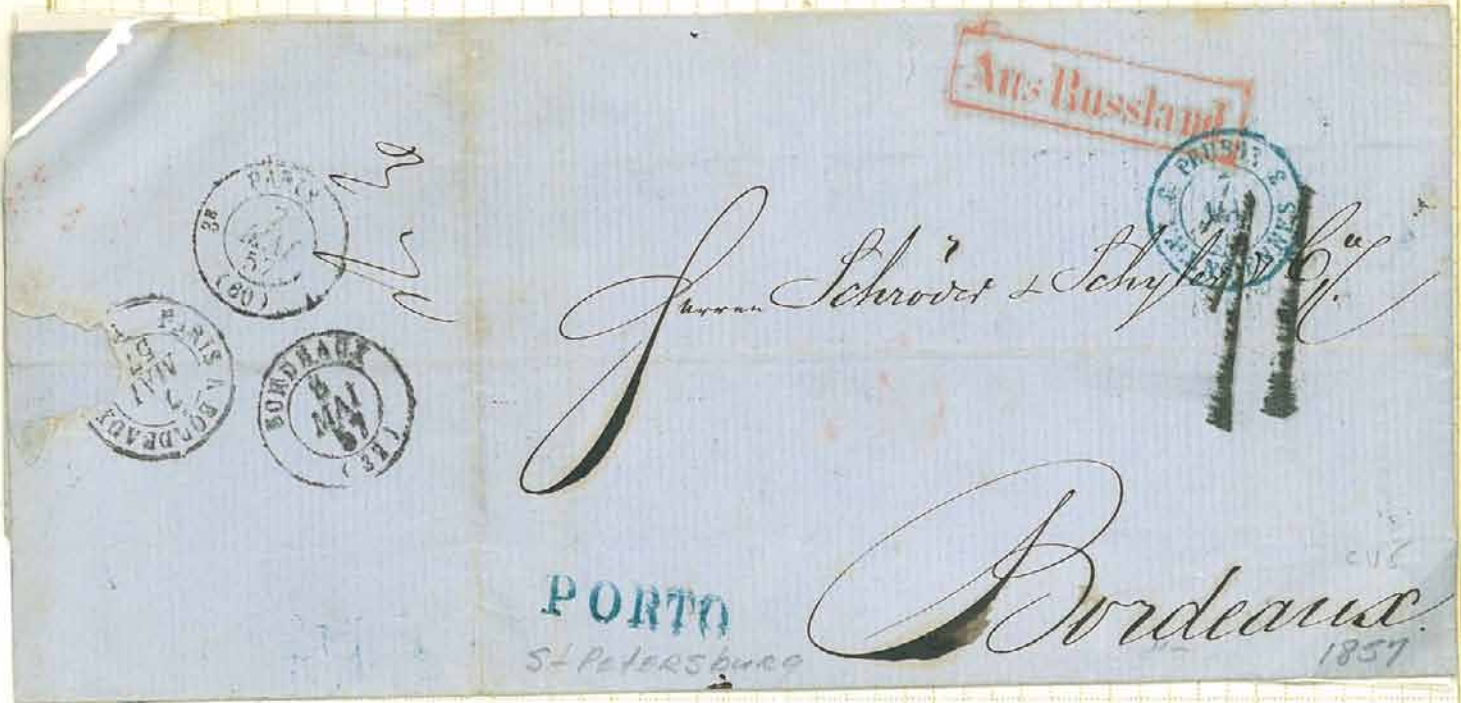 Aus Russland
PRUSSE
7
MAI
VALENNES
PARIS
7
MAI
57
(60)
PARIS A BORDEAUX
7
MAI
57
BORDEAUX
8
MAI
57
(32)
Herren Schröder & Schyler & Co.
Bordeaux.
11
PORTO
St Petersburg
CV5
1857